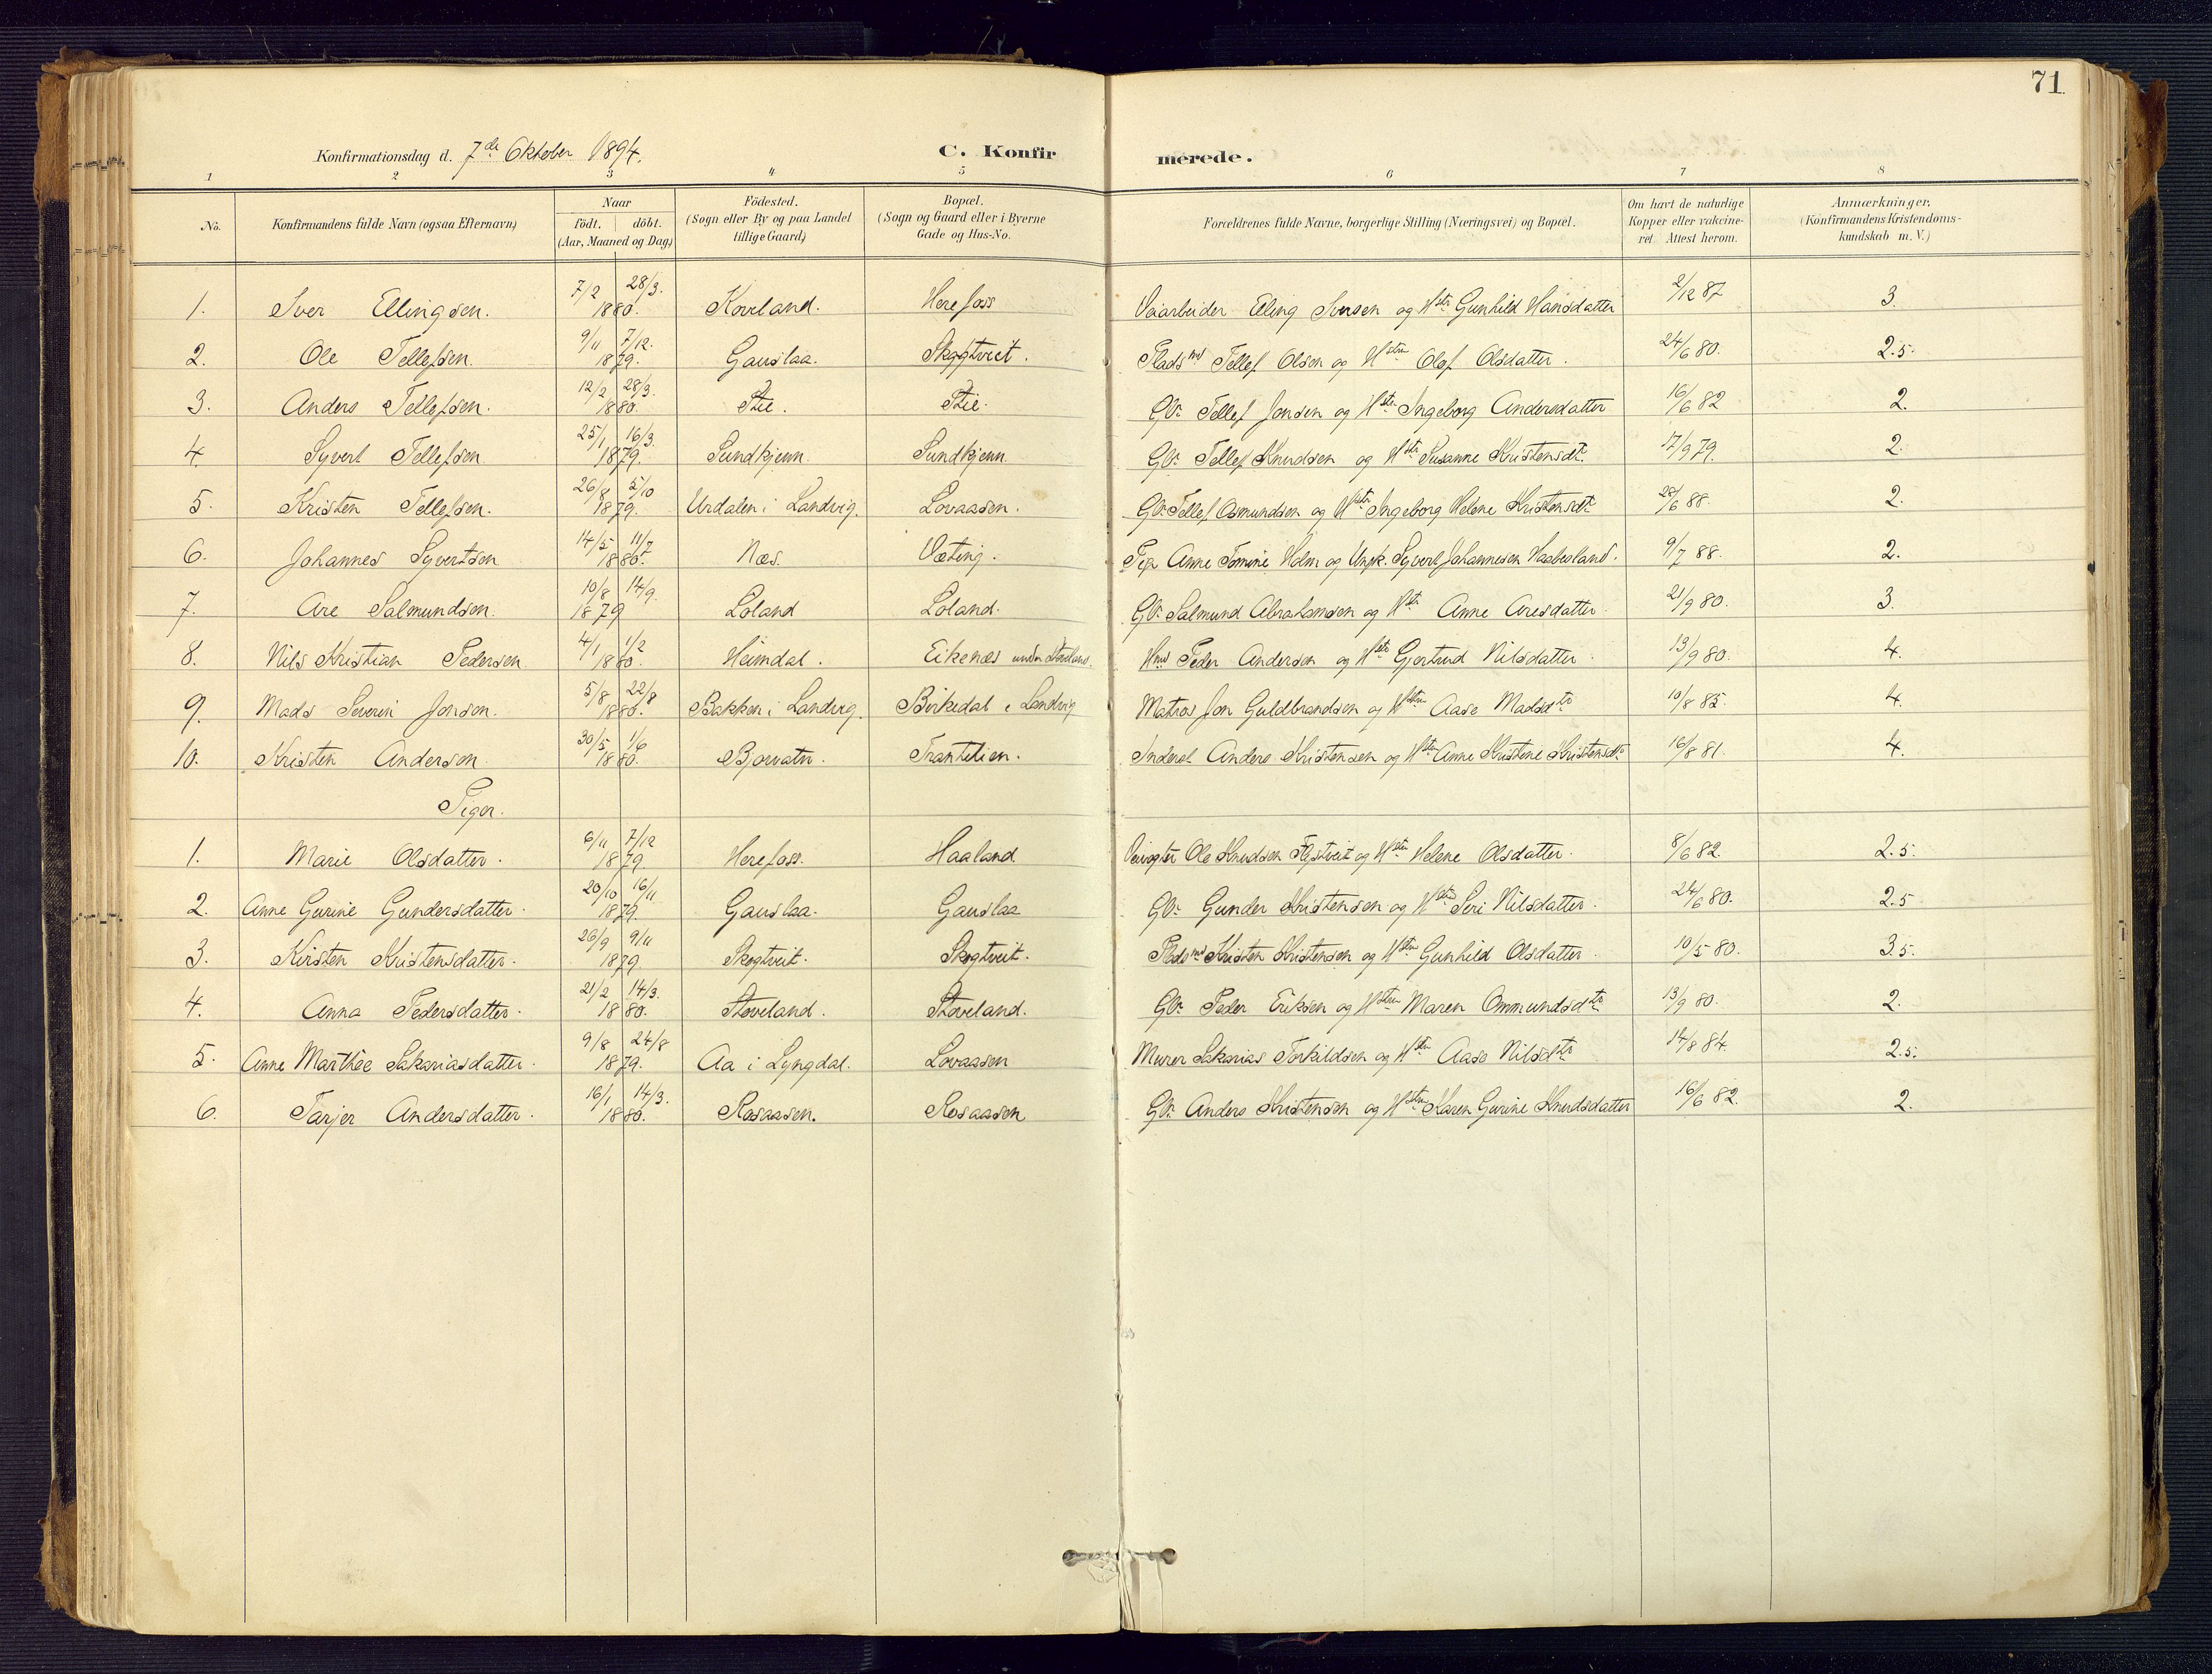 71
Konfirmationsdag d. 7de Oktober 1894. C. Konfir merede.
1 2 3 4 5 6 7 8
No. Konfirmandens fulde Navn (ogsaa Efternavn) Naar födt. döbt. (Aar, Maaned og Dag) Födested. (Sogn eller By og paa Landet tillige Gaard) Bopæl. (Sogn og Gaard eller i Byerne Gade og Hus-No. Forældrenes fulde Navne, borgerlige Stilling (Næringsvei) og Bopæl. Om havt de naturlige Kopper eller vakcineret. Attest herom. Anmærkninger. (Konfirmandens Kristendomskundskab m. V.)
1. Iver Ellingsen. 7/2 28/3. 1880. Koveland. Herefoss Veiarbeider Elling Iversen og Hstr Gunhild Hansdatter 2/12 87 3.
2. Ole Tellefsen. 9/11 7/12. 1879. Gauslaa. Skogtveit. Pladsmd Tellef Olsen og Hstru Olef Olsdatter. 24/6 80. 2.5.
3. Anders Tellefsen. 12/2 28/3. 1880. Stie. Stie. Gbr. Tellef Jonsen og Hstr Ingeborg Andersdatter 16/6 82 2.
4. Syvert Tellefsen. 25/1 16/3. 1879. Sundkjenn. Sundkjenn. Gbr. Tellef Knudsen og Hstr Susanne Kristensdtr. 17/9 79. 2.
5. Kristen Tellefsen. 26/8 5/10 1879. Urdalen i Landvig. Lovaasen. Gbr. Tellef Osmundsen og Hstr Ingeborg Helene Kristensdtr 28/6 88. 2.
6. Johannes Syvertsen 14/5 11/7 1880. Næs. Væting. Pige Anne Tomine Holm og Ungk. Syvert Johannesen Haabesland. 9/7 88. 2.
7. Are Salmundsen. 10/8 14/9. 1879 Loland Loland. Gbr. Salmund Abrahamsen og Hstr Anne Aresdatter. 21/9 80. 3.
8. Nils Kristian Pedersen 4/1 1/2 1880. Heimdal. Eikenæs under Støveland. Hmd Peder Andersen og Hstr Gjertrud Nilsdatter. 13/9 80. 4.
9. Mads Severin Jonsen. 5/8 22/8 1880. Bakken i Landvig. Birkedal i Landvig Matros Jon Guldbrandsen og Hstru Aase Madsdtr 10/8 85. 4.
10. Kristen Andersen. 30/5 1/6 1880. Bjorvatn. Trantelien. Inderst Anders Kristensen og Hstru Anne Kristine Kristensdtr 16/8 81. 4.
Piger.
1. Marie Olsdatter. 6/11 7/12 1879. Herefoss. Haaland Veivogter Ole Knudsen Flystveit og Hstru Helene Olsdatter. 8/6 82. 2.5.
2. Anne Gurine Gundersdatter. 20/10 16/11 1879. Gauslaa. Gauslaa Gbr. Gunder Kristensen og Hstru Siri Nilsdatter. 24/6 80. 2.5
3. Kirsten Kristensdatter. 26/9 9/11 1879 Skogtveit. Skogtveit. Pladsmd Kristen Kristensen og Hstru Gunhild Olsdatter. 10/5 80. 3.5.
4. Anna Pedersdatter. 21/2 14/3. 1880. Støveland. Støveland. Gbr. Peder Eriksen og Hstru Maren Ommundsdtr 13/9 80. 2.
5. Anne Marthee Sakariasdatter. 9/8 24/8 1879. Aa i Lyngdal. Lovaasen Murer Sakarias Torkildsen og Hstr Aase Nilsdtr 14/8 84. 2.5.
6. Tarjer Andersdatter. 16/1 14/3. 1880. Rosaasen. Rosaasen Gbr. Anders Kristensen og Hstru Karen Gurine Knudsdatter 16/6 82. 2.